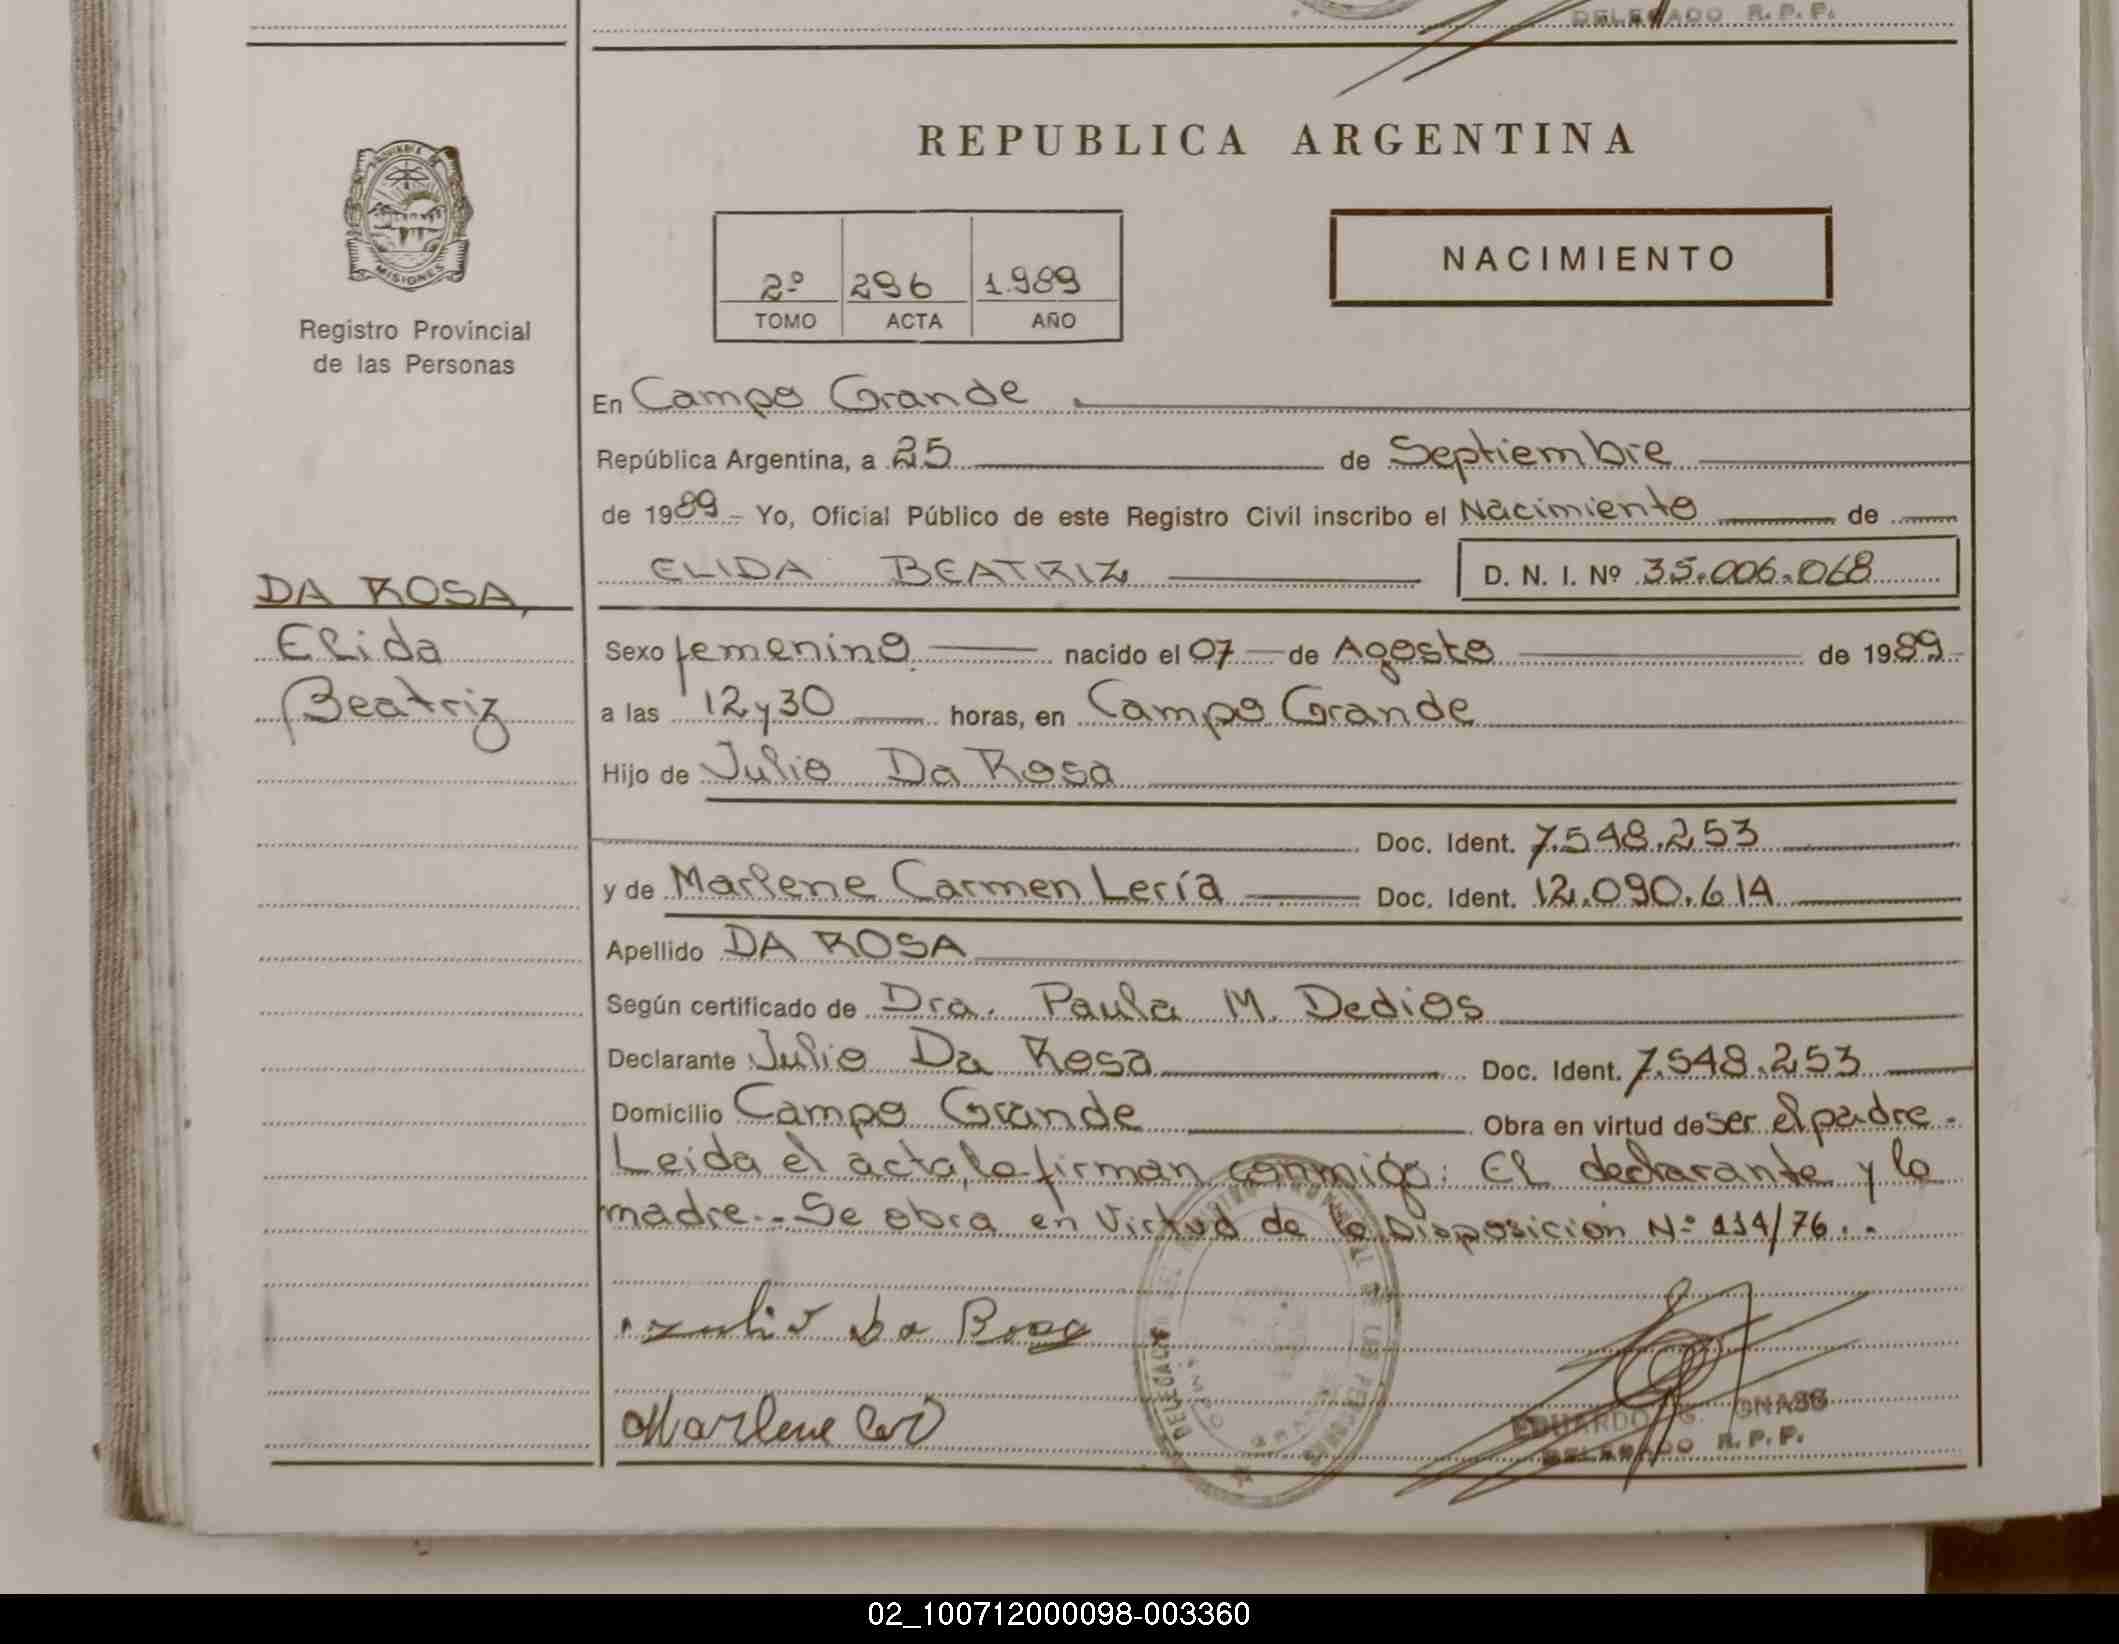 DELEGADO R. P. P.
REPUBLICA ARGENTINA
PROVINCIA DE
MISIONES
Registro Provincial
de las Personas
2º 296 1.989
TOMO ACTA AÑO
NACIMIENTO
En Campo Grande
República Argentina, a 25 de Septiembre
de 1989 - Yo, Oficial Público de este Registro Civil inscribo el Nacimiento de
ELIDA BEATRIZ D. N. I. Nº 35.006.068
DA ROSA,
Elida
Beatriz
Sexo femenino nacido el 07 de Agosto de 1989
a las 12 y 30 horas, en Campo Grande
Hijo de Julio Da Rosa
Doc. Ident. 7.548.253
y de Marlene Carmen Lería Doc. Ident. 12.090.614
Apellido DA ROSA
Según certificado de Dra. Paula M. Dedios
Declarante Julio Da Rosa Doc. Ident. 7.548.253
Domicilio Campo Grande Obra en virtud de ser el padre.
Leida el acta, la firman conmigo: El declarante y la
madre.- Se obra en virtud de la Disposicion Nº 114/76.-
Julio Da Rosa
Marlene
EDUARDO G.
DELEGADO R. P. P.
02_100712000098-003360